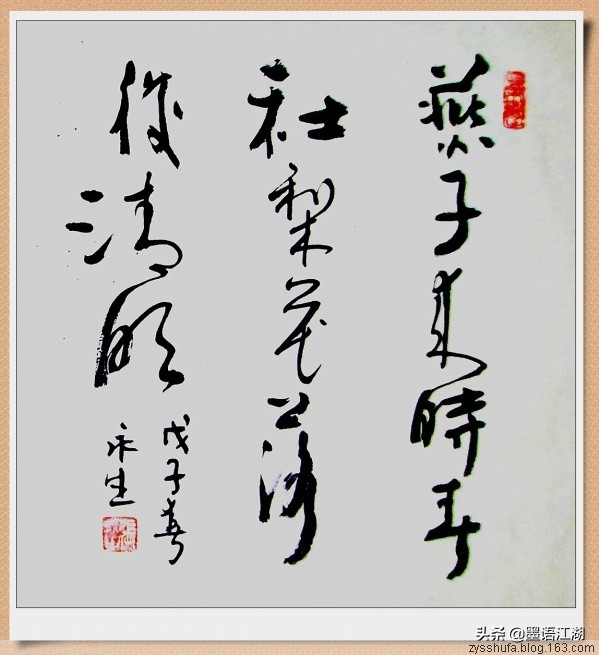 燕子来時春
社梨花落
後清明
戊子春
永生
头条 @墨语江湖
zysshufa.blog.163.com